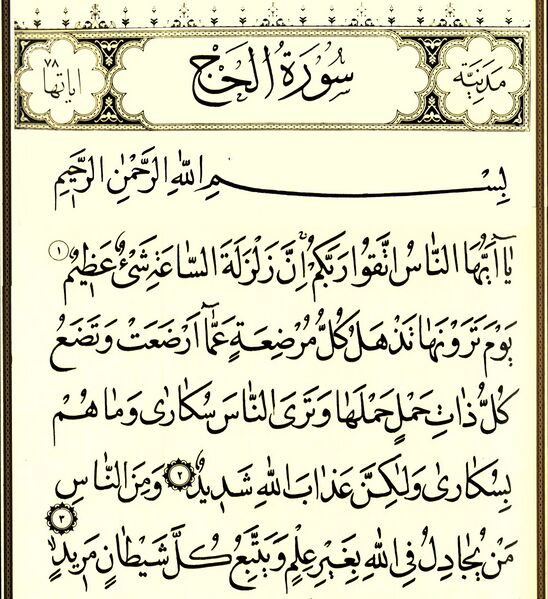 مَدَنِيَّة سُورَةُ الْحَجِّ اياتها ٧٨
بِسْمِ اللّٰهِ الرَّحْمٰنِ الرَّحٖيمِ
يَٓا اَيُّهَا النَّاسُ اتَّقُوا رَبَّكُمْ اِنَّ زَلْزَلَةَ السَّاعَةِ شَيْءٌ عَظٖيمٌ ١
يَوْمَ تَرَوْنَهَا تَذْهَلُ كُلُّ مُرْضِعَةٍ عَمَّٓا اَرْضَعَتْ وَتَضَعُ
كُلُّ ذَاتِ حَمْلٍ حَمْلَهَا وَتَرَى النَّاسَ سُكَارٰى وَمَا هُمْ
بِسُكَارٰى وَلٰكِنَّ عَذَابَ اللّٰهِ شَدٖيدٌ ٢ وَمِنَ النَّاسِ
مَنْ يُجَادِلُ فِي اللّٰهِ بِغَيْرِ عِلْمٍ وَيَتَّبِعُ كُلَّ شَيْطَانٍ مَرٖيدٍ ٣